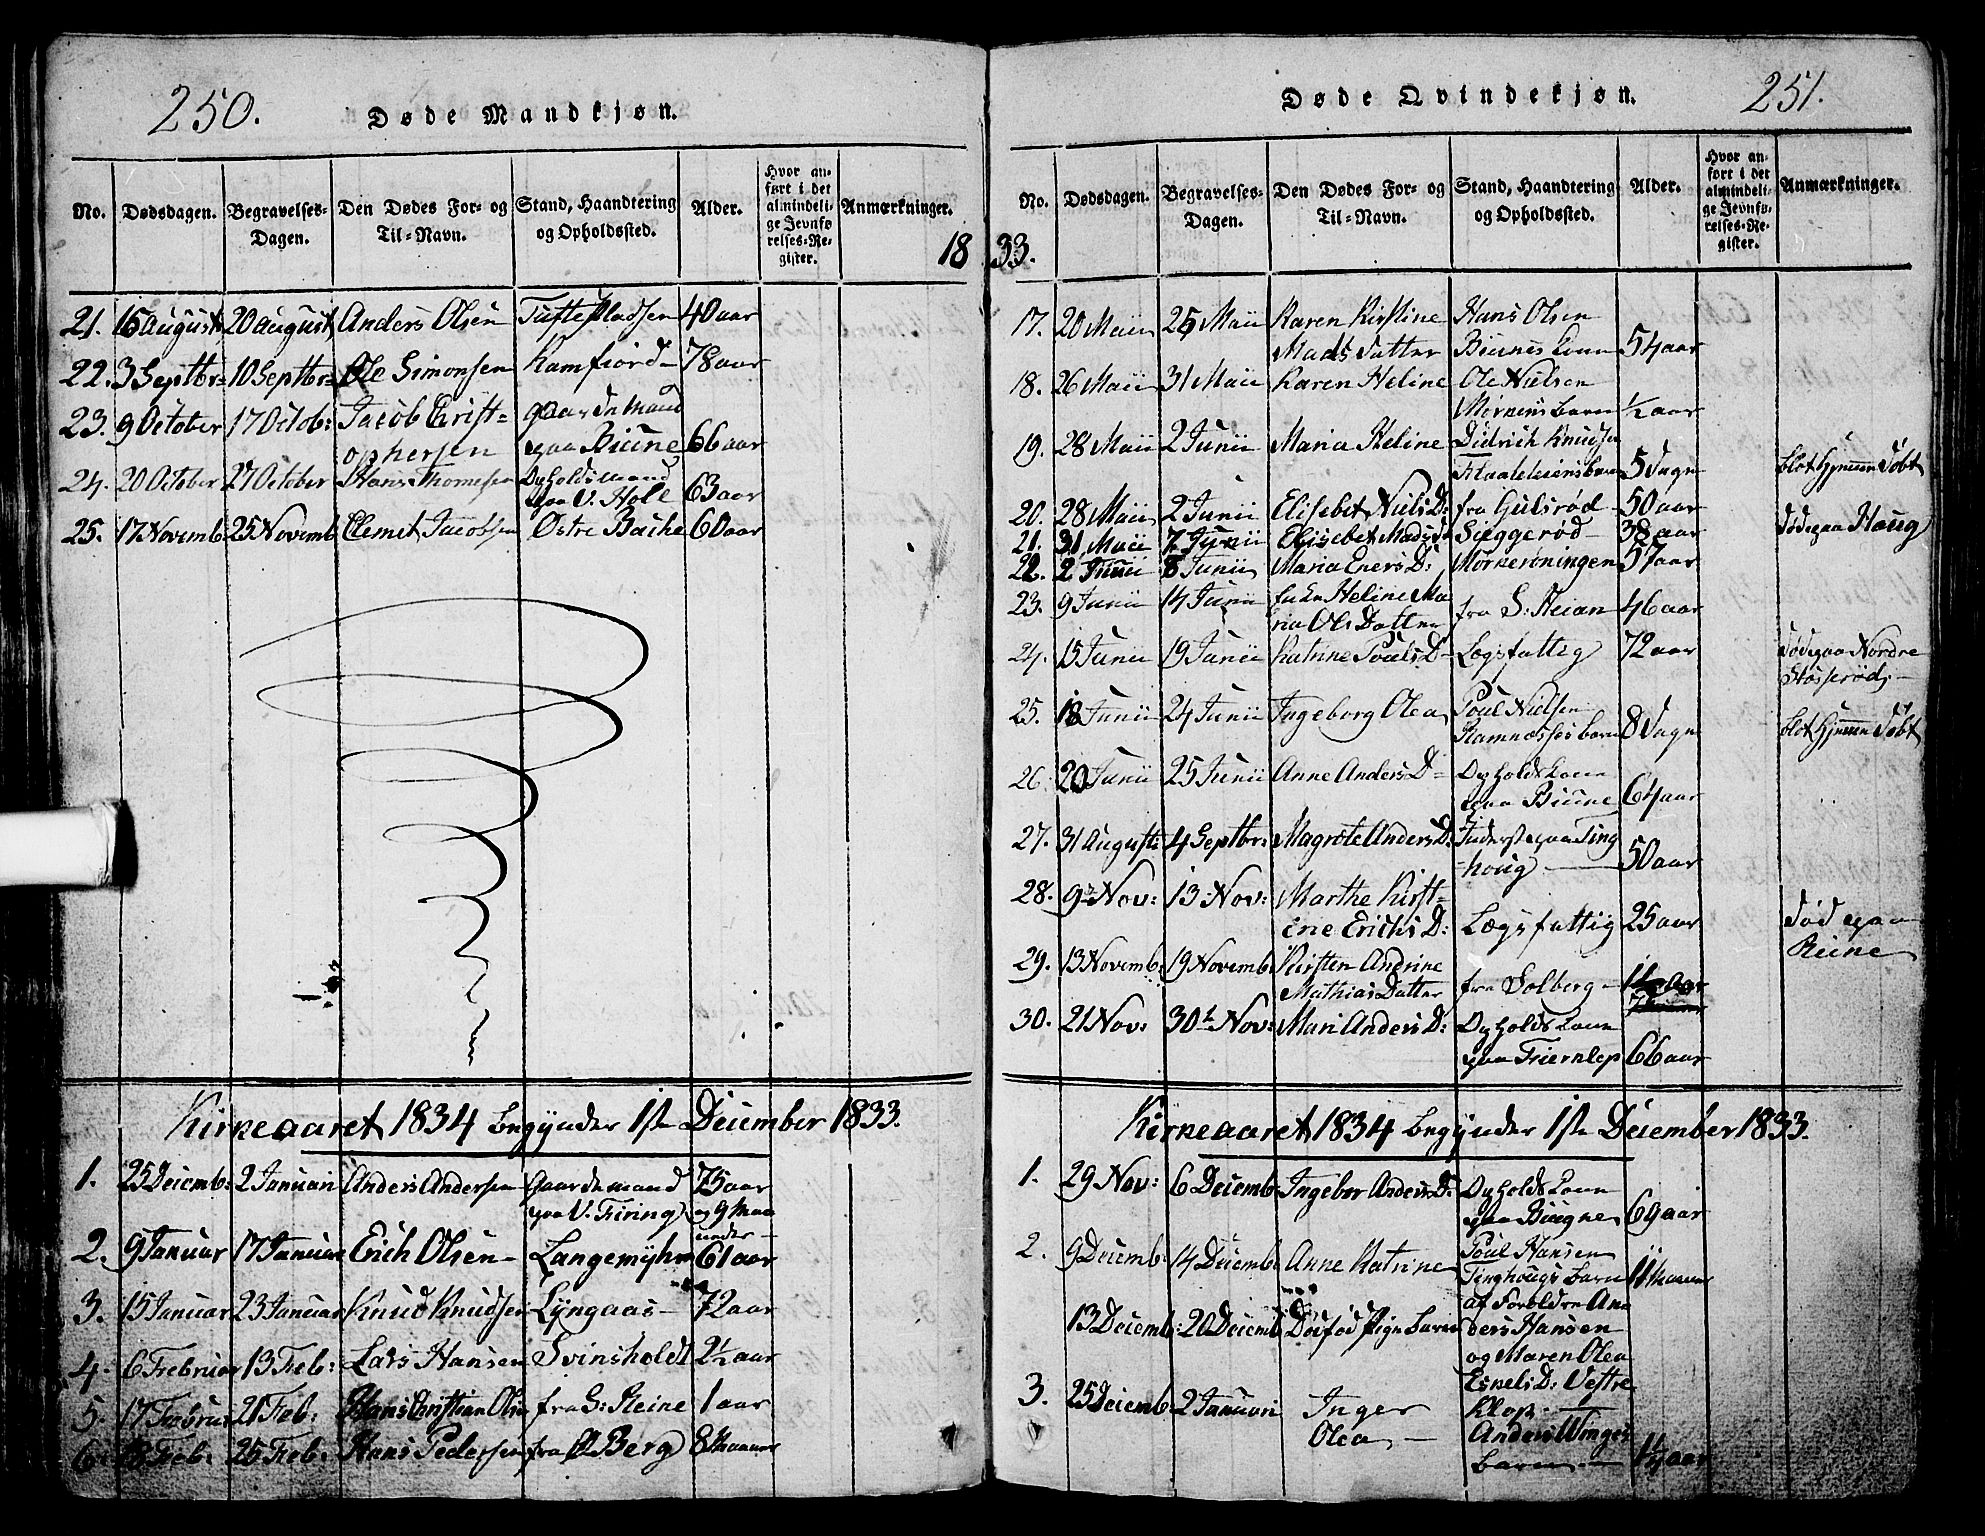 250.
Døde Mandkjøn.
No. Dødsdagen. Begravelses-Dagen. Den Dødes For- og Til-Navn. Stand, Haandtering og Opholdssted. Alder. Hvor anført i det almindelige Jevnførelses-Register. Anmærkninger.
18
21. 16 August 20 August Anders Olsen Tufte Pladsen 40 aar
22. 3 Septbr: 10 Septbr: Ole Simonsen Ramfiord 78 aar
23. 9 October 17 Octob: Jacob Christ- Gaardemand
ophersen paa Biune 66 aar
24. 20 October 27 October Hans Thomesen Opholdsmand
paa V. Holt 63 aar
25. 17 Novemb 25 Novemb Clemet Jacobsen Østre Bache 60 aar
Kirkeaaret 1834 begynder 1ste December 1833.
1. 25 Decemb: 2 Januari Anders Andersen Gaardemand 75 aar
paa V. Firing og 9 Maa
neder
2. 9 Januar 17 Januar Erich Olsen Langemyhr 61 aar
3. 15 Januar 23 Januar Knud Knudsen Lyngaas 72 aar
4. 6 Februar 13 Feb: Lars Hansen Svinsholdt 2½ aar
5. 17 Februar 21 Feb: Hans Christian Olsen fra S: Reine 1 aar
6. 18 Feb: 25 Feb: Hans Pedersen fra Berg 8 Maaner
251.
Døde Qvindekjøn.
No. Dødsdagen. Begravelses-Dagen. Den Dødes For- og Til-Navn. Stand, Haandtering og Opholdssted. Alder. Hvor anført i det almindelige Jevnførelses-Register. Anmærkninger.
33.
17. 20 Maii 25 Maii Karen Kirstine Hans Olsen
Mads Datter Biunes Kone 54 aar
18. 26 Maii 31 Maii Karen Heline Ole Nielsen
Mørkens barn ½ aar
19. 28 Maii 2 Junii Maria Heline Didrich Knudsen
barn 5 Dage blot Hjemme Døbt
20. 28 Maii 2 Junii Elisebet Niels D: fra Gulsrød 50 aar
21. 31 Maii 7 Junii Elisebet Mads D: Siggerød 38 aar Død paa Haug
22. 2 Junii 8 Junii Maria Eners D: Mørkerøningen 57 aar
23. 9 Junii 14 Junii Enke Heline Ma
ria Ols Datter fra S: Reian 46 aar
24. 15 Junii 19 Junii Katrine Pouls D Lægsfattig 72 aar Død paa Nordre
Skosserød
25. 18 Junii 24 Junii Ingeborg Olea Poul Nielsen
Ramnæsses barn 8 Dage blot Hjemme Døbt
26. 20 Junii 25 Junii Anne Anders D Opholdskone
paa Biune 64 aar
27. 31 August: 4 Septbr: Magrete Anders D: Inderste paa Ting
houg 50 aar
28. 9 Nov: 13 Nov: Marthe Kirst-
ine Erichs D: Lægsfattig 25 aar Død paa
Reine
29. 13 Novemb: 19 Novemb: Kirsten Andrine
Mathias Datter fra Solberg
30. 21 Nov: 30t Nov: Mari Anders D: Opholdskone
paa Friernlep 66 aar
Kirkeaaret 1834 begynder 1ste December 1833.
1. 29 Nov: 6 Decemb Ingebor Anders D: Opholdskone
paa Biugne 69 aar
2. 9 Decemb: 14 Decemb: Anne Katrine Poul Hansen
Tinghougs barn 11 Maaner
13 Decemb: 20 Decemb Dødfød Pigebarn af Forældre An
ders Hansen
og Maren Olea
Eskels D: Vestre
Klop
3. 25 Decemb 2 Januari Inger
Olea Anders Wingers
barn 1¼ aar